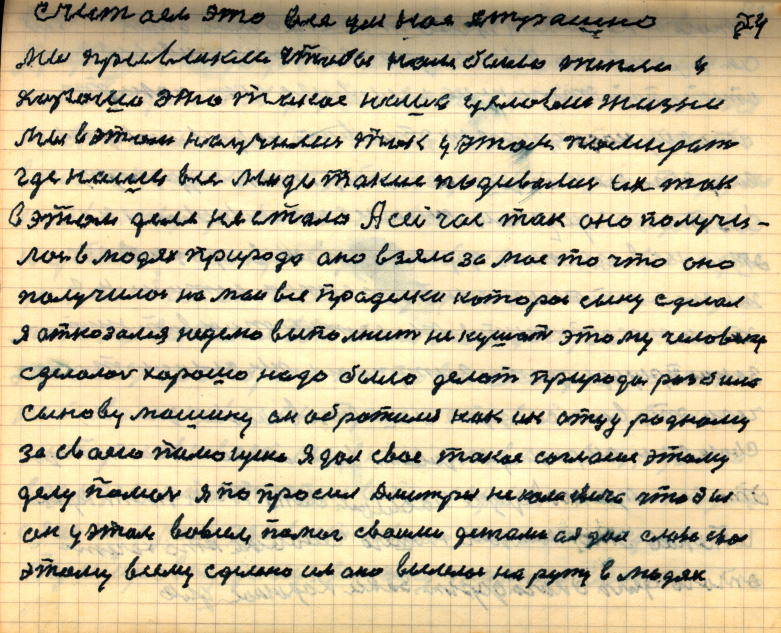 считаем это все для нас страшно 24
мы привыкли чтобы нам было тепло и
хорошо это такое наша условия жизни
мы в этом научились так у этом помират
где наши все люди такие подевалис их так
в этом деле не стало А сейчас так оно получи-
лос в людях природа ано взяла за мое то что оно
получилос на маи все проделки которое сыну сделал
я отказался неделю выполнит не кушат этому человеку
сделалос харошо надо было делат природа разбила
сынову машину он обратился как ик отцу родному
за своею помощию Я дал свое такое согласие этому
делу помоч я попросил Дмитрия николаевича чтобы
он у этом всем помог своими детами а я дал слово свое
этому всему сделано им ано вылелос на ружу в людях